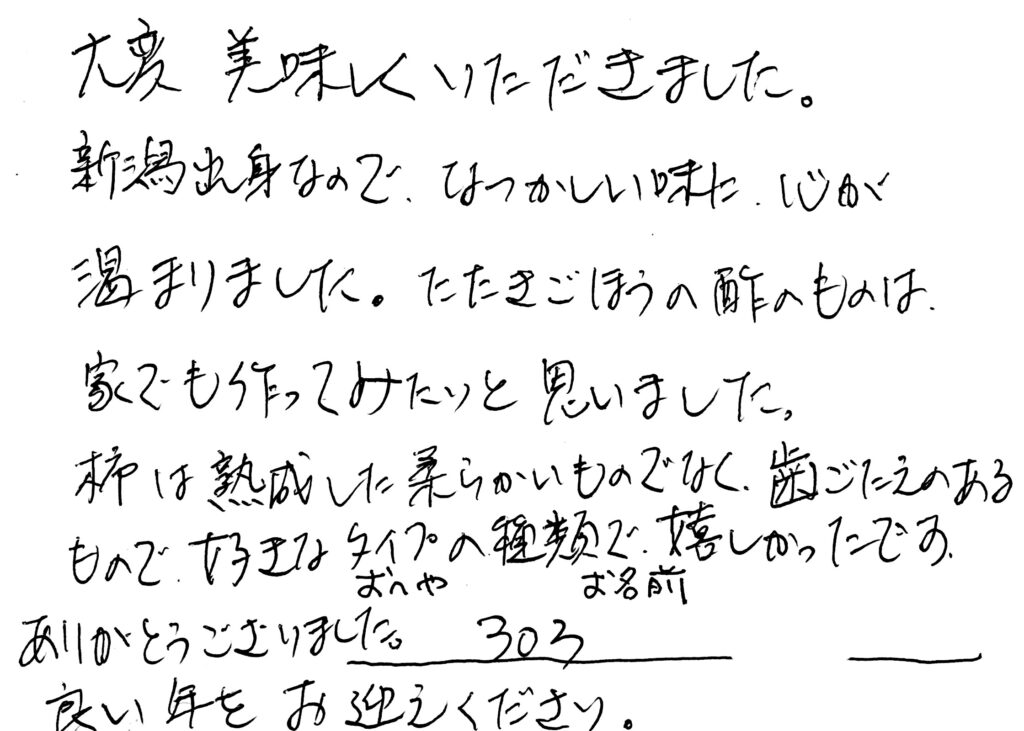 大変 美味しくいただきました。
新潟出身なので、なつかしい味に、心が
温まりました。たたきごぼうの酢のものは、
家でも作ってみたいと思いました。
柿は熟成した柔らかいものでなく、歯ごたえのある
もので、好きなタイプの種類で、嬉しかったです。
おへや お名前
ありがとうございました。 303
良い年をお迎えください。